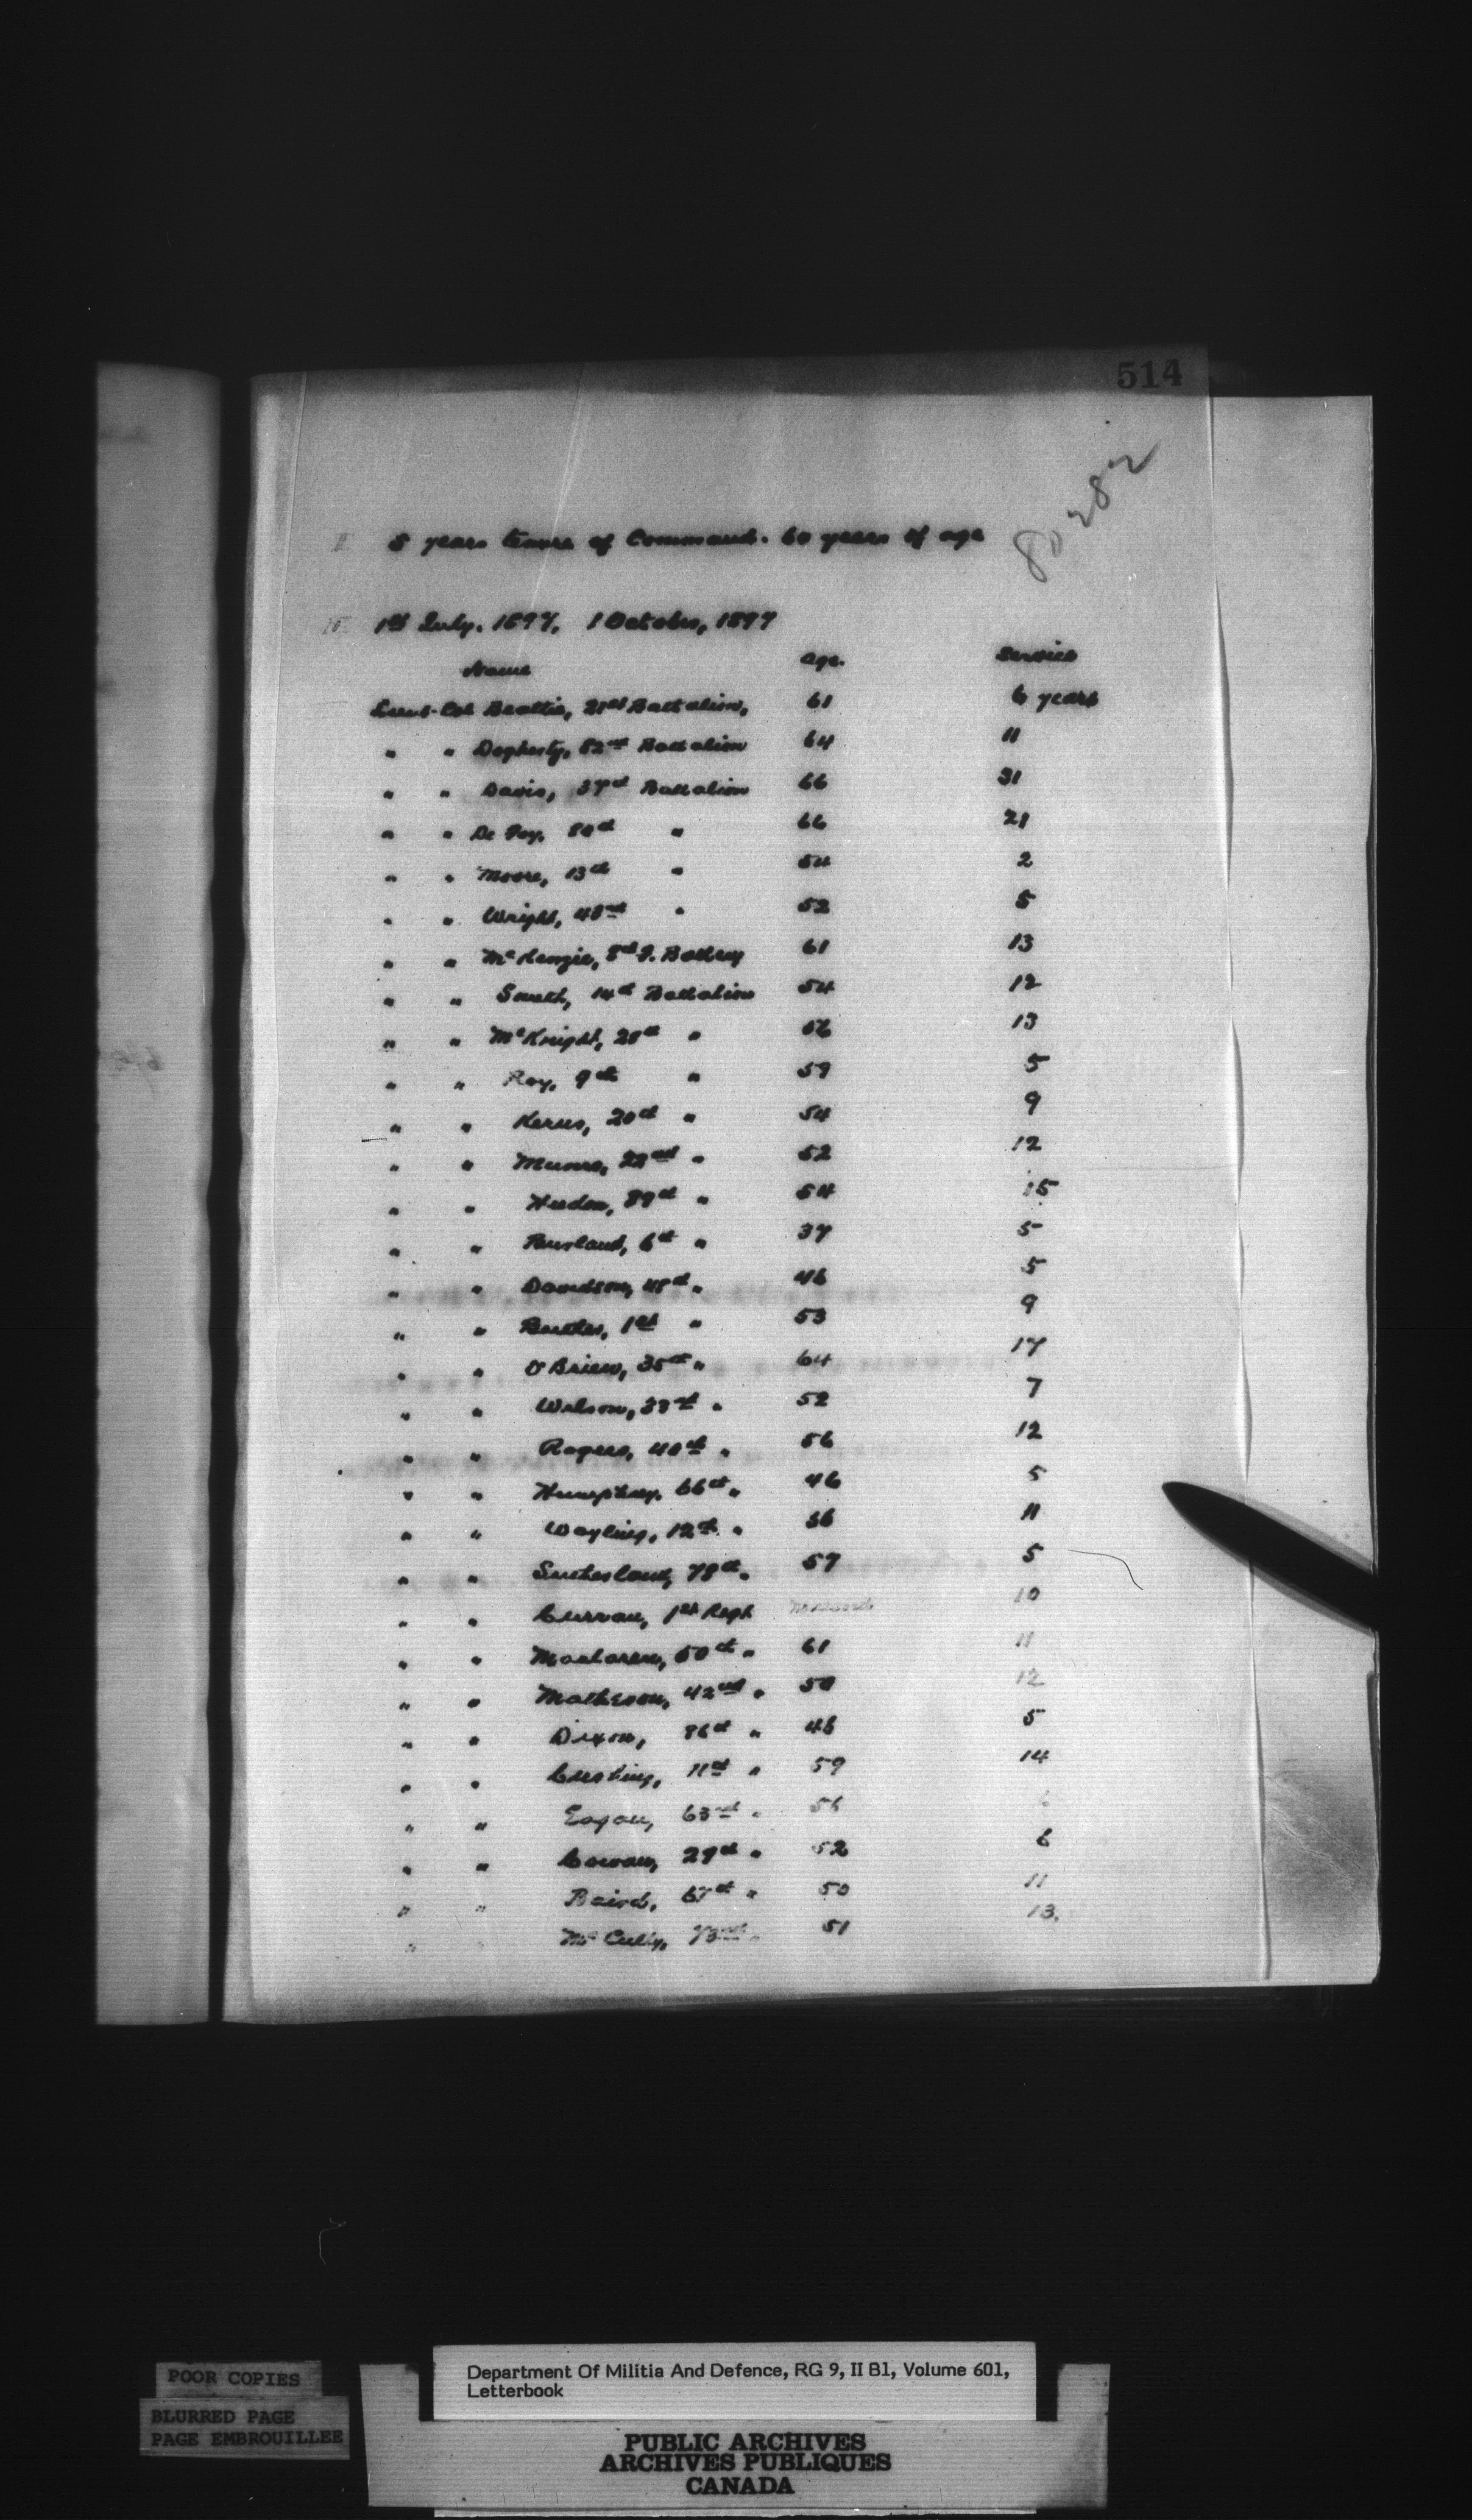 514
80282
5 years tenure of Command. 60 years of age
1st July. 1897, 1 October, 1897
Name age. Service
Lieut-Col Beattie, 21st Battalion, 61 6 years
" " Dogherty, 82nd Battalion 64 11
" " Davis, 37th Battalion 66 31
" " De Foy, 80th " 66 21
" " Moore, 13th " 54 2
" " Wright, 43rd " 52 5
" " McKenzie, 8th F. Battery 61 13
" " Smith, 14th Battalion 54 12
" " McKnight, 28th " 56 13
" " Roy, 9th " 59 5
" " Kerns, 20th " 54 9
" " Munro, 22nd " 52 12
" " Hudon, 89th " 54 15
" " Burland, 6th " 37 5
" " Davidson, 48th " 46 5
" " Butler, 1st " 53 9
" " O'Brien, 35th " 64 17
" " Wilson, 33rd " 52 7
" " Rogers, 40th " 56 12
" " Humphrey, 66th " 46 5
" " Wayling, 12th " 56 11
" " Sutherland, 78th " 57 5
" " Curran, 1st Regt 10
" " MacLaren, 50th " 61 11
" " Matheson, 42nd " 50 12
" " Dixon, 86th " 48 5
" " Cushing, 11th " 59 14
" " Egan, 63rd " 56 6
" " Cowan, 29th " 52 6
" " Baird, 67th " 50 11
" " McCully, 73rd " 51 13.
POOR COPIES
BLURRED PAGE
PAGE EMBROUILLEE
Department Of Militia And Defence, RG 9, II B1, Volume 601,
Letterbook
PUBLIC ARCHIVES
ARCHIVES PUBLIQUES
CANADA